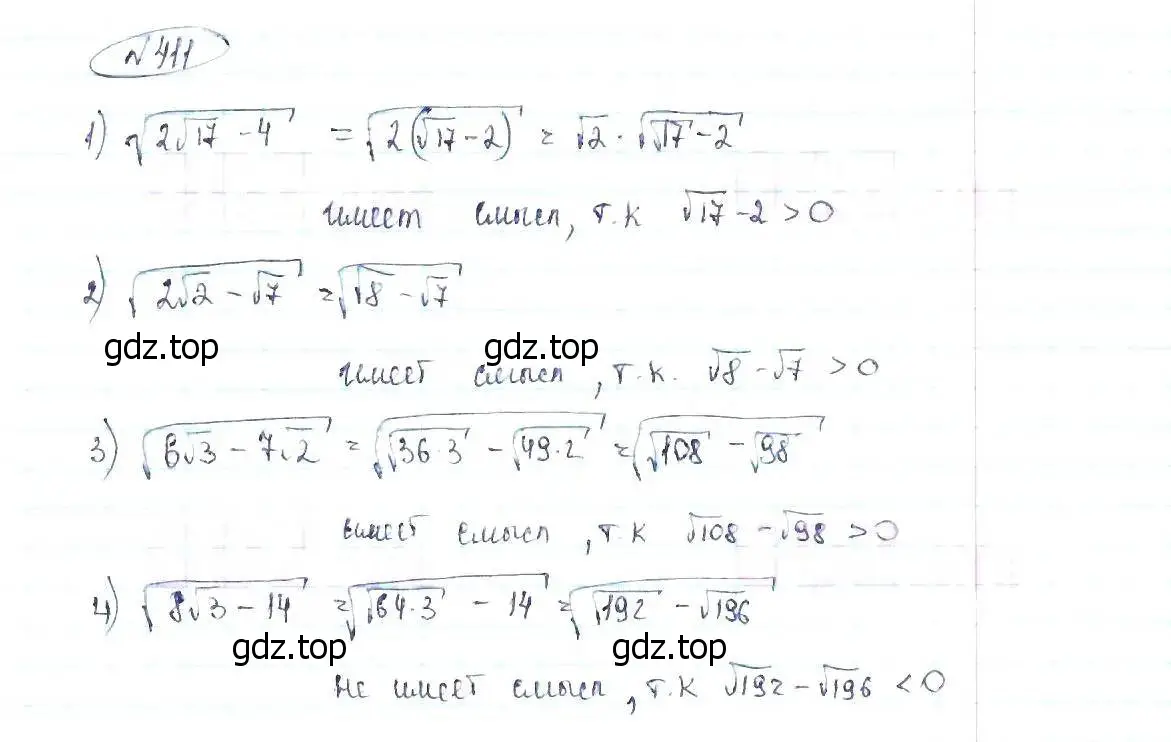 № 411
1) √(2√17 - 4) = √(2(√17 - 2)) = √2 · √(√17 - 2)
имеет смысл, т.к √17 - 2 > 0
2) √(2√2 - √7) = √(√8 - √7)
gdz.top gdz.top
имеет смысл, т.к. √8 - √7 > 0
3) √(6√3 - 7√2) = √(√36·3 - √49·2) = √(√108 - √98)
имеет смысл, т.к √108 - √98 > 0
4) √(8√3 - 14) = √(√64·3 - 14) = √(√192 - √196)
gdz.top gdz.top
не имеет смысл, т.к √192 - √196 < 0